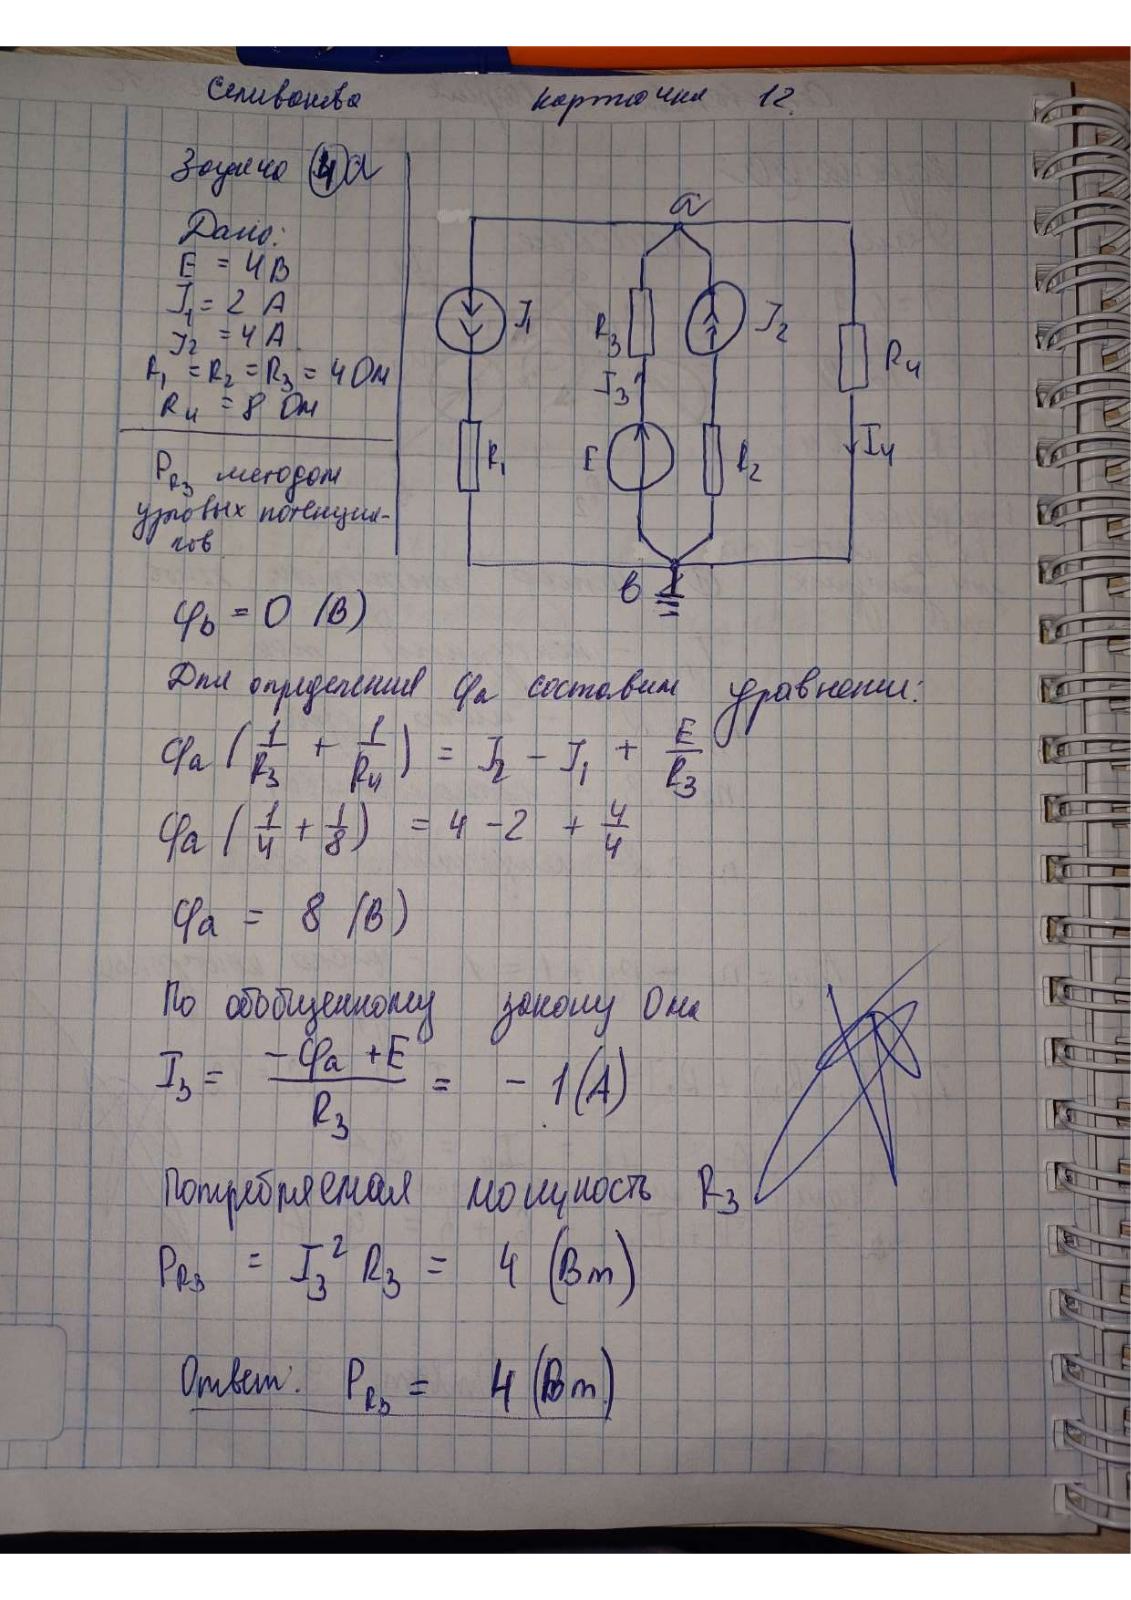 Селиванова карточка 12
Задача 4а
Дано:
E = 4 В
J₁ = 2 А
J₂ = 4 А
R₁ = R₂ = R₃ = 4 Ом
R₄ = 8 Ом
P_R₃ методом
узловых потенциа-
лов
a
J₁
R₃
J₂
R₄
I₃
I₄
R₁
E
R₂
b
φb = 0 (В)
Для определения φa составим уравнение:
φa (1/R₃ + 1/R₄) = J₂ - J₁ + E/R₃
φa (1/4 + 1/8) = 4 - 2 + 4/4
φa = 8 (В)
По обобщенному закону Ома
I₃ = (-φa + E)/R₃ = - 1 (А)
Потребляемая мощность R₃
P_R₃ = I₃² R₃ = 4 (Вт)
Ответ: P_R₃ = 4 (Вт)